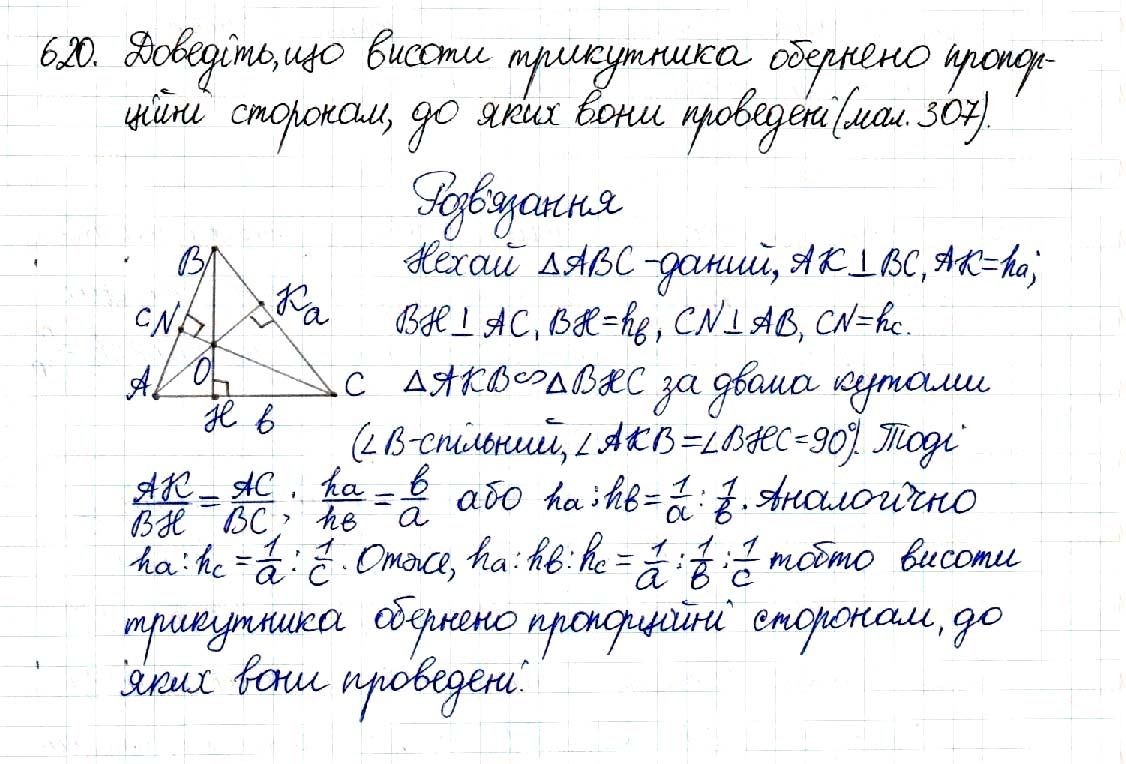 620. Доведіть, що висоти трикутника обернено пропор-
ційні сторонам, до яких вони проведені (мал. 307).
Розв'язання
Нехай △ABC - даний, AK⊥BC, AK=ha;
BH⊥AC, BH=hв, CN⊥AB, CN=hc.
△AKB∾△BHC за двома кутами
(∠B-спільний, ∠AKB=∠BHC=90°). Тоді
AK/BH = AC/BC; ha/hв = в/a або ha:hв = 1/a : 1/в. Аналогічно
ha:hc = 1/a : 1/c. Отже, ha:hв:hc = 1/a : 1/в : 1/c тобто висоти
трикутника обернено пропорційні сторонам, до
яких вони проведені.
B
K a
c N
O
A
C
H в